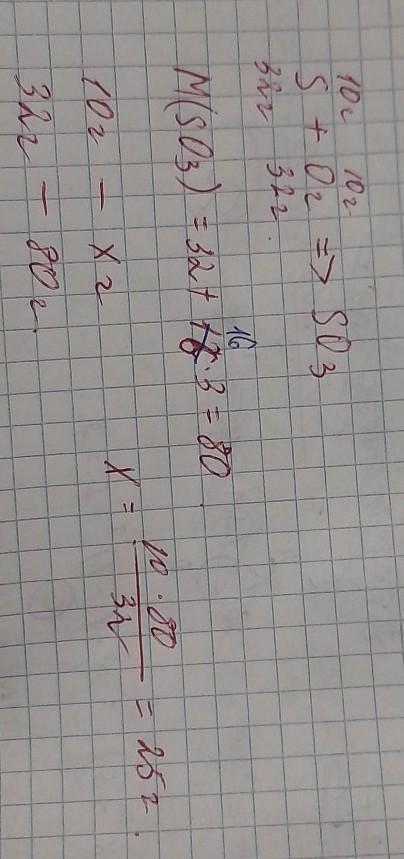 10г 10г
S + O2 => SO3
32г 32г.
M(SO3) = 32 + 16·3 = 80
10г – x г
32г – 80г.
x = 10·80 / 32 = 25г.